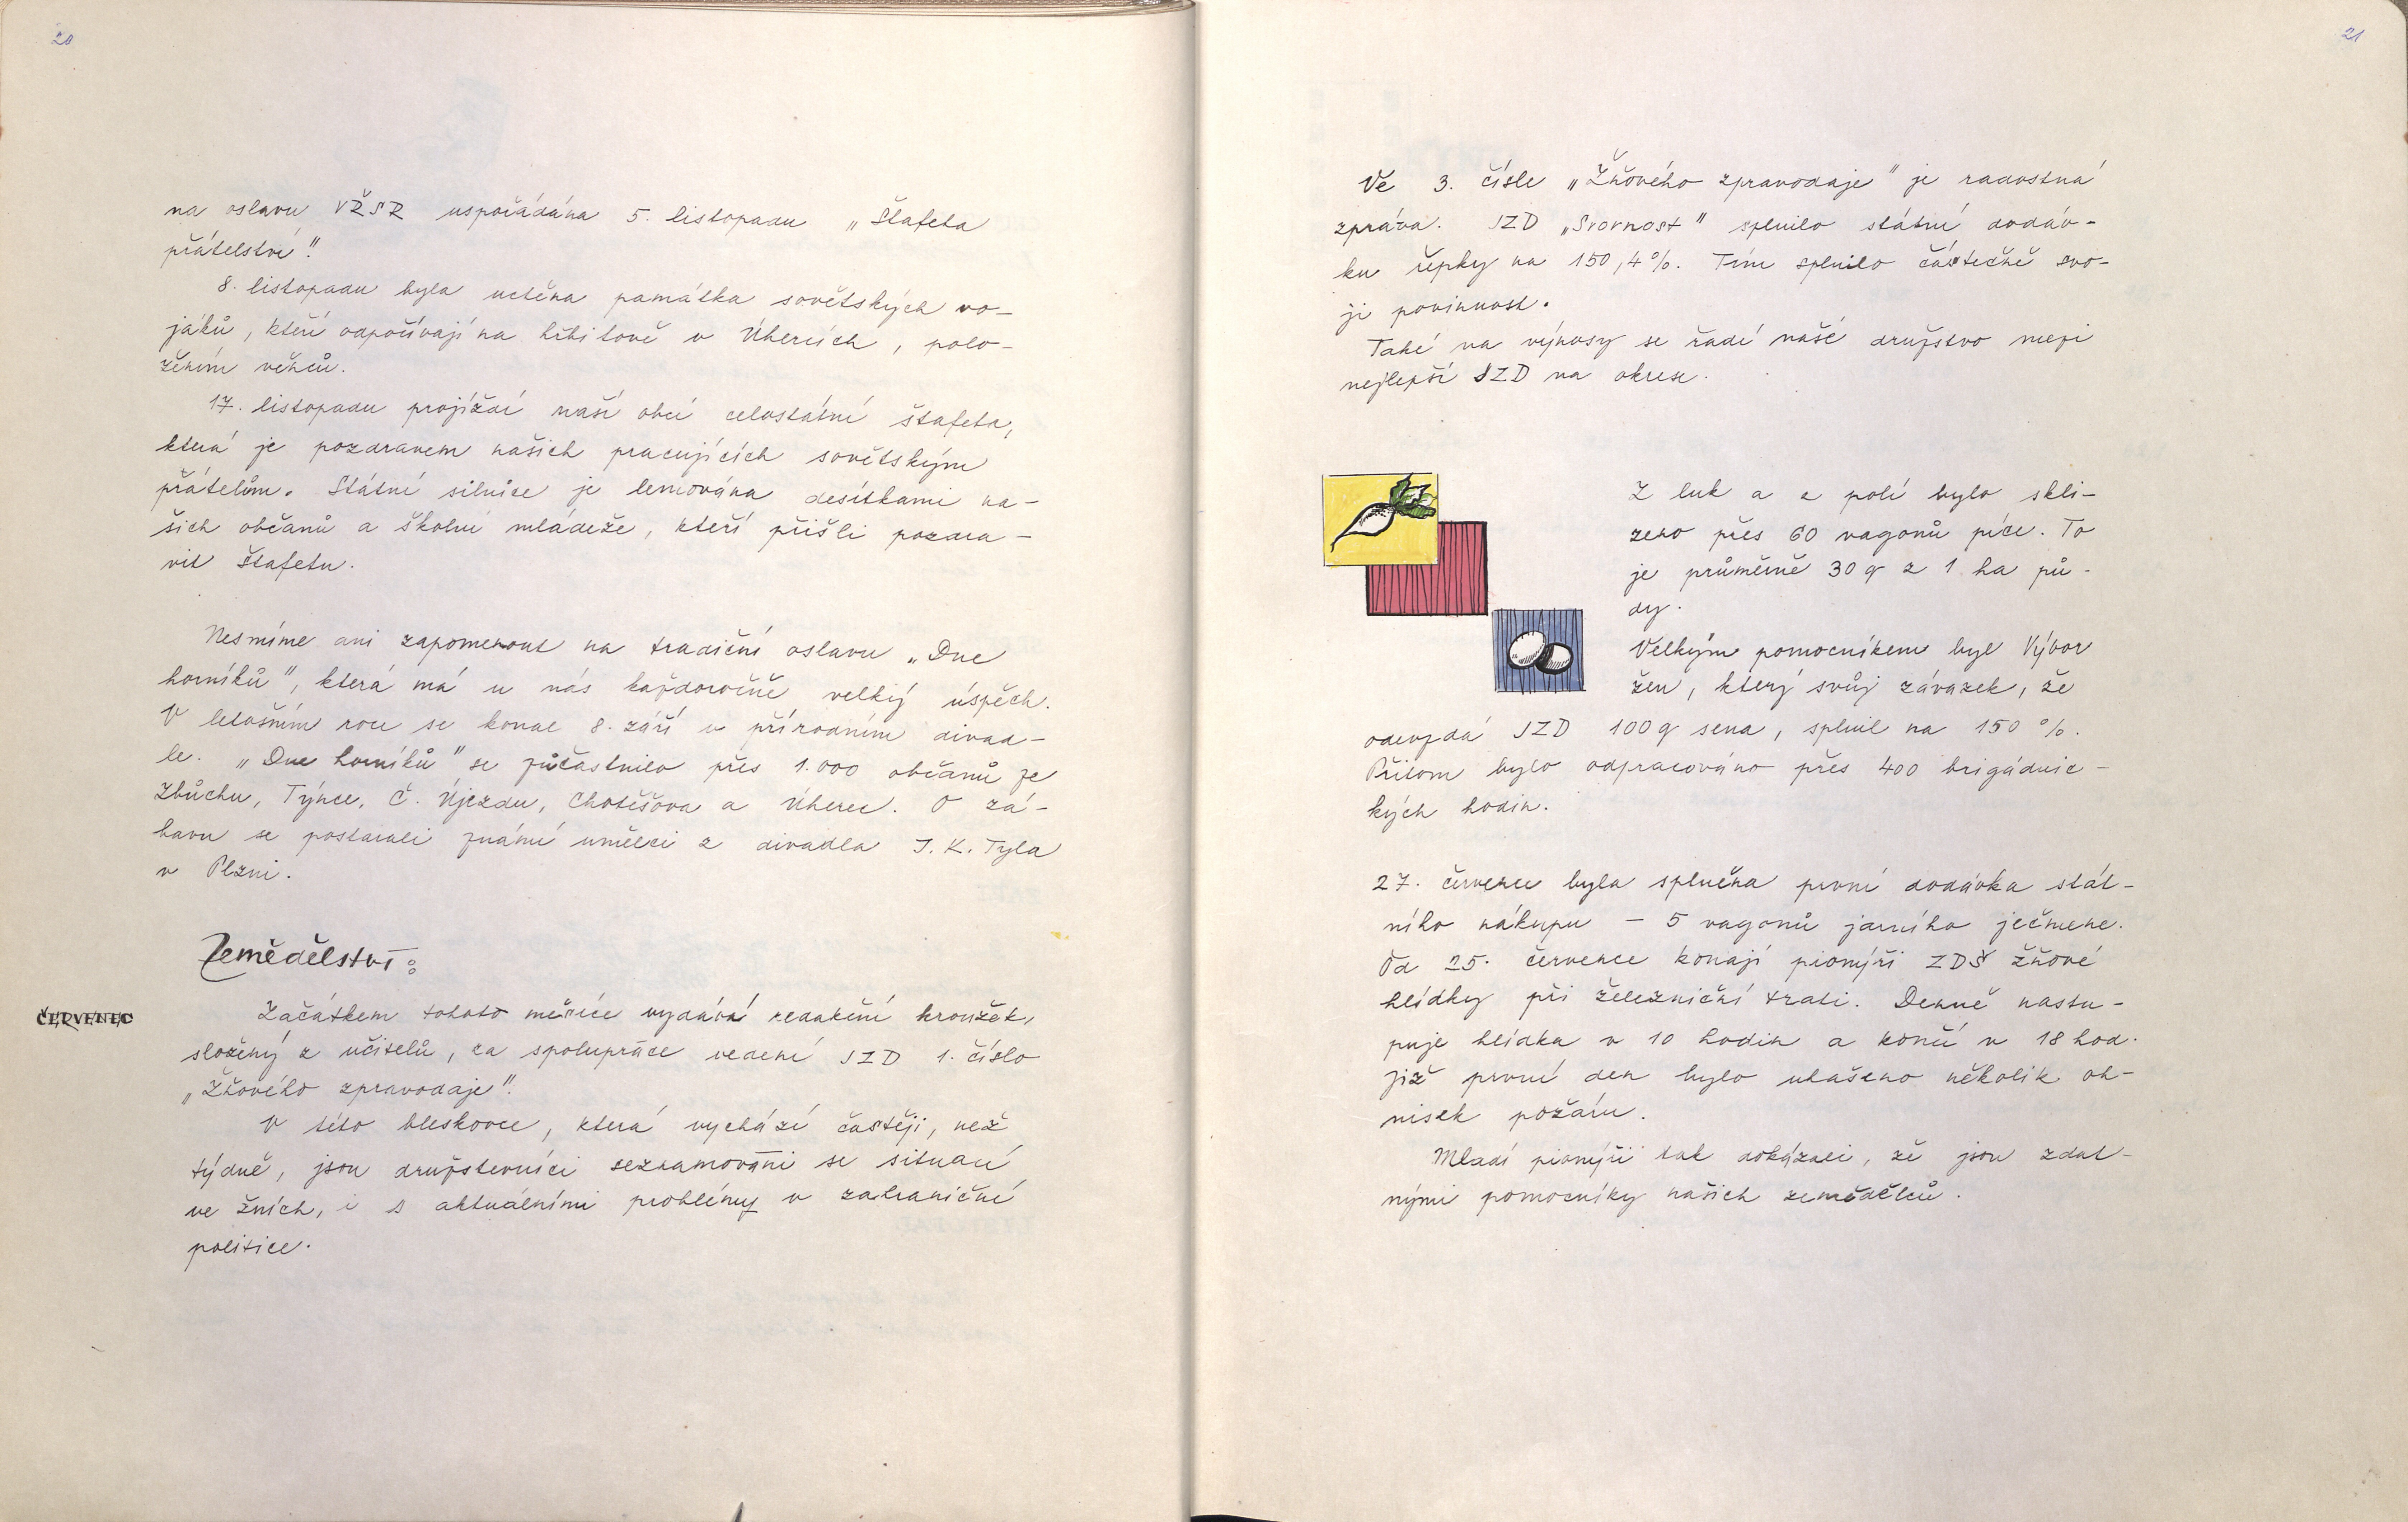 20
na oslavu VŘSR uspořádána 5. listopadu „Štafeta
přátelství".
8. listopadu byla uctěna památka sovětských vo-
jáků, kteří odpočívají na hřbitově v Úhercích, polo-
žením věnců.
17. listopadu projíždí naší obcí celostátní štafeta,
která je pozdravem našich pracujících sovětským
přátelům. Státní silnice je lemována desítkami na-
šich občanů a školní mládeže, kteří přišli pozdra-
vit štafetu.
Nesmíme ani zapomenout na tradiční oslavu „Dne
horníků", která má u nás každoročně velký úspěch.
V letošním roce se konal 8. září v přírodním divad-
le. „Dne horníků" se zúčastnilo přes 1.000 občanů ze
Zbůchu, Týnce, Č. Újezdu, Chotěšova a Úherec. O zá-
bavu se postarali známí umělci z divadla J. K. Tyla
v Plzni.
Zemědělství:
ČERVENEC
Začátkem tohoto měsíce vydává redakční kroužek,
složený z učitelů, za spolupráce vedení JZD 1. číslo
„Žňového zpravodaje".
V této bleskovce, která vychází častěji, než
týdně, jsou družstevníci seznamováni se situací
ve žních, i s aktuálními problémy v zahraniční
politice.
21
Ve 3. čísle „Žňového zpravodaje" je radostná
zpráva. JZD „Svornost" splnilo státní dodáv-
ku řepky na 150,4%. Tím splnilo částečně svo-
ji povinnost.
Také na výnosy se řadí naše družstvo mezi
nejlepší JZD na okrese.
Z luk a z polí bylo skli-
zeno přes 60 vagonů píce. To
je průměrně 30 q z 1 ha pů-
dy.
Velkým pomocníkem byl Výbor
žen, který svůj závazek, že
odevzdá JZD 100 q sena, splnil na 150 %.
Přitom bylo odpracováno přes 400 brigádnic-
kých hodin.
27. července byla splněna první dodávka stát-
ního nákupu - 5 vagonů jarního ječmene.
Od 25. července konají pionýři ZDŠ žňové
hlídky při železniční trati. Denně nastu-
puje hlídka v 10 hodin a končí v 18 hod.
Již první den bylo uhašeno několik oh-
nisek požáru.
Mladí pionýři tak dokázali, že jsou zdat-
nými pomocníky našich zemědělců.